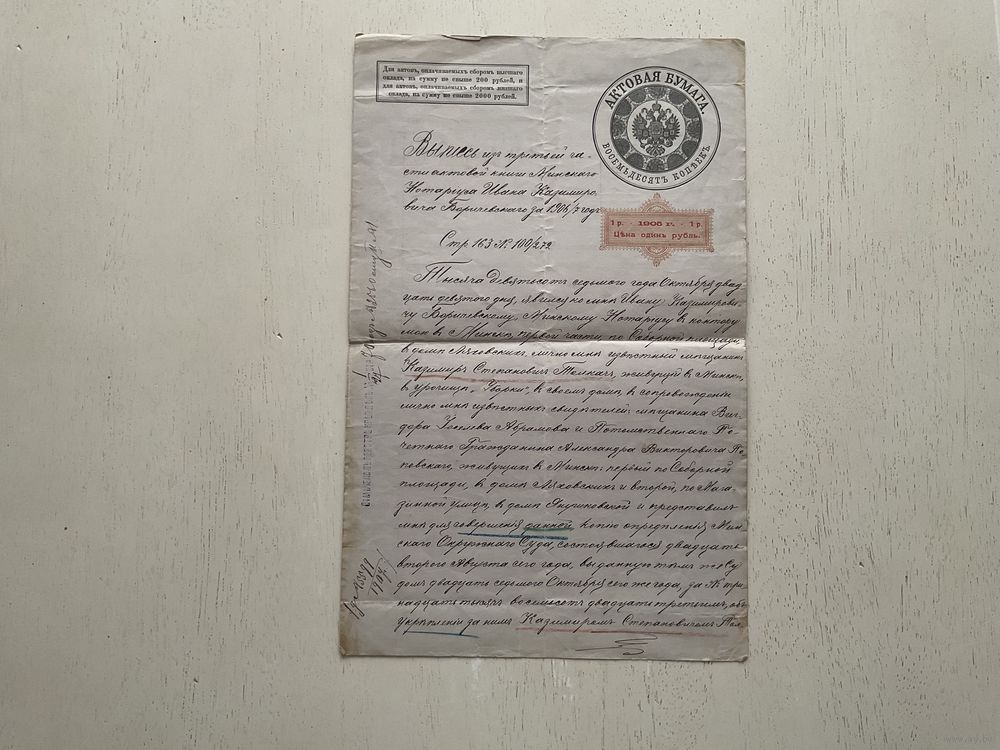 Для актовъ, оплачиваемыхъ сборомъ высшаго
оклада, на сумму не свыше 200 рублей, и
для актовъ, оплачиваемыхъ сборомъ низшаго
оклада, на сумму не свыше 2000 рублей.
АКТОВАЯ БУМАГА.
ВОСЕМЬДЕСЯТЪ КОПѢЕКЪ
1 р. - 1906 г. - 1 р.
Цѣна одинъ рубль.
Выпись изъ третьей ча-
сти актовой книги Минскаго
Нотаріуса Ивана Казиміро
вича Боричевскаго за 1906/7 годъ
Стр 163 № 100/272
Тысяча девятьсотъ седьмого года Октября двад
цать девятого дня, явился ко мнѣ Ивану Казимірови
чу Боричевскому, Минскому Нотаріусу въ контору
мою въ г. Минскѣ, первой части, по Соборной площади,
въ домѣ Ляховскихъ, лично мнѣ извѣстный мѣщанинъ
Казиміръ Степановичъ Толкачъ, живущій въ Минскѣ,
въ урочищѣ въ своемъ домѣ, въ сопровожденіи
лично мнѣ извѣстныхъ свидѣтелей: мѣщанина Виг
дора Абрамова и Потомственнаго По
четнаго Гражданина Александра Викторовича По
повскаго, живущихъ въ Минскѣ: первый по Соборной
площади, въ домѣ Ляховскихъ и второй, по Мага
зинной улицѣ, въ домѣ Янушковской и представилъ
мнѣ для совершенія данной, копію опредѣленія Мин
скаго Окружнаго Суда, состоявшагося двадцать
второго Августа сего года, выданную тѣмъ же Су
домъ двадцать седьмого Октября сего же года, за № три
надцать тысячъ восемьсотъ двадцать третьимъ, объ
укрѣпленіи за нимъ Казиміромъ Степановичемъ Тол